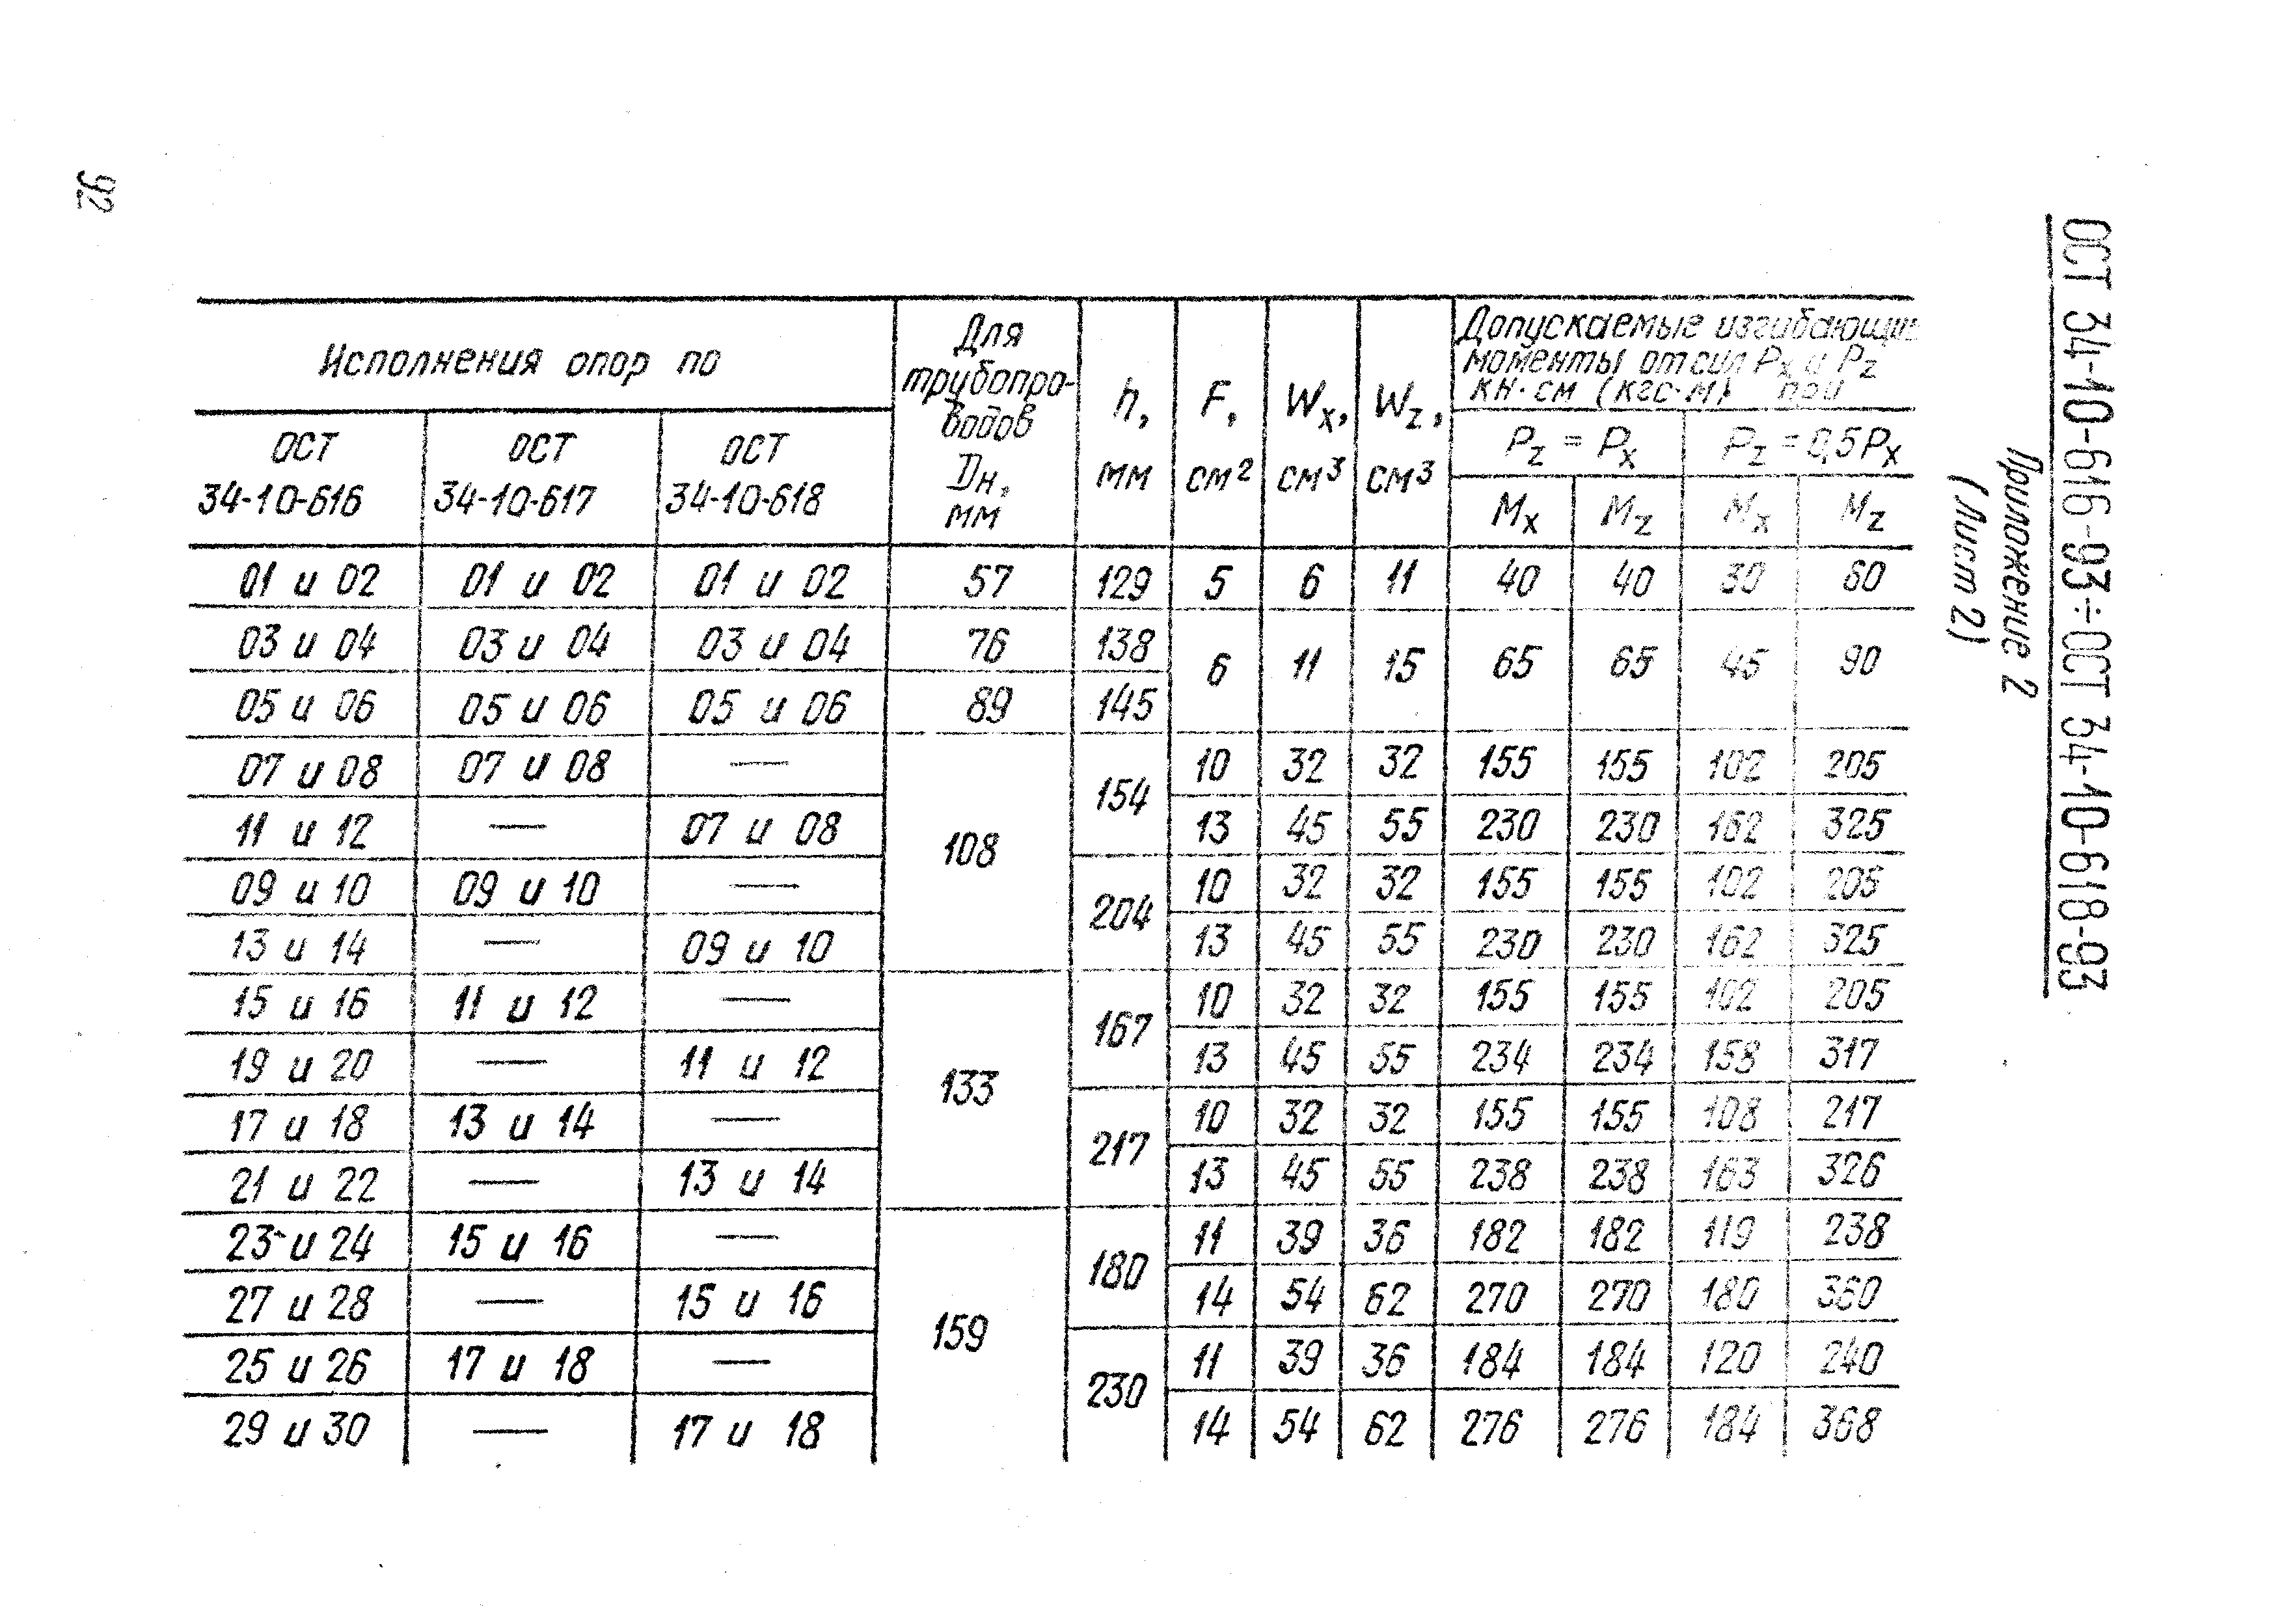 92
ОСТ 34-10-616-93÷ОСТ 34-10-618-93
Приложение 2
(Лист 2)
Исполнения опор по
Для трубопро-
водов
Dн,
мм
h,
мм
F,
см²
Wx,
см³
Wz,
см³
Допускаемые изгибающие
моменты от сил Px и Pz
кн·см (кгс·м) при
ОСТ 34-10-616 ОСТ 34-10-617 ОСТ 34-10-618
Pz = Px Pz = 0,5Px
Mx Mz Mx Mz
01 и 02 01 и 02 01 и 02 57 129 5 6 11 40 40 30 60
03 и 04 03 и 04 03 и 04 76 138 6 11 15 65 65 45 90
05 и 06 05 и 06 05 и 06 89 145
07 и 08 07 и 08 — 108 154 10 32 32 155 155 102 205
11 и 12 — 07 и 08 13 45 55 230 230 162 325
09 и 10 09 и 10 — 204 10 32 32 155 155 102 205
13 и 14 — 09 и 10 13 45 55 230 230 162 325
15 и 16 11 и 12 — 133 167 10 32 32 155 155 102 205
19 и 20 — 11 и 12 13 45 55 234 234 158 317
17 и 18 13 и 14 — 217 10 32 32 155 155 108 217
21 и 22 — 13 и 14 13 45 55 238 238 163 326
23 и 24 15 и 16 — 159 180 11 39 36 182 182 119 238
27 и 28 — 15 и 16 14 54 62 270 270 180 360
25 и 26 17 и 18 — 230 11 39 36 184 184 120 240
29 и 30 — 17 и 18 14 54 62 276 276 184 368